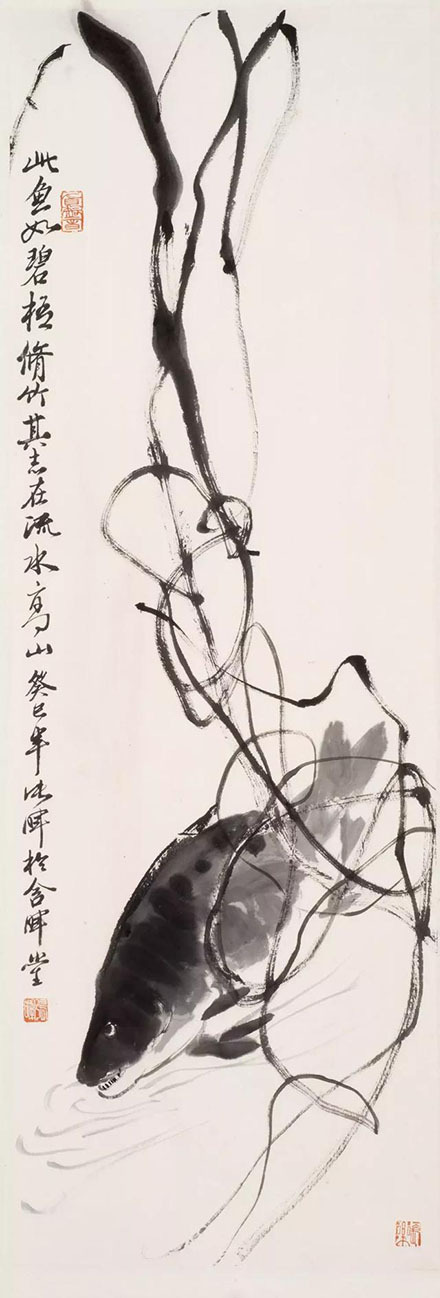 此鱼如碧梧脩竹其志在流水高山癸巳年沐晖於含晖堂